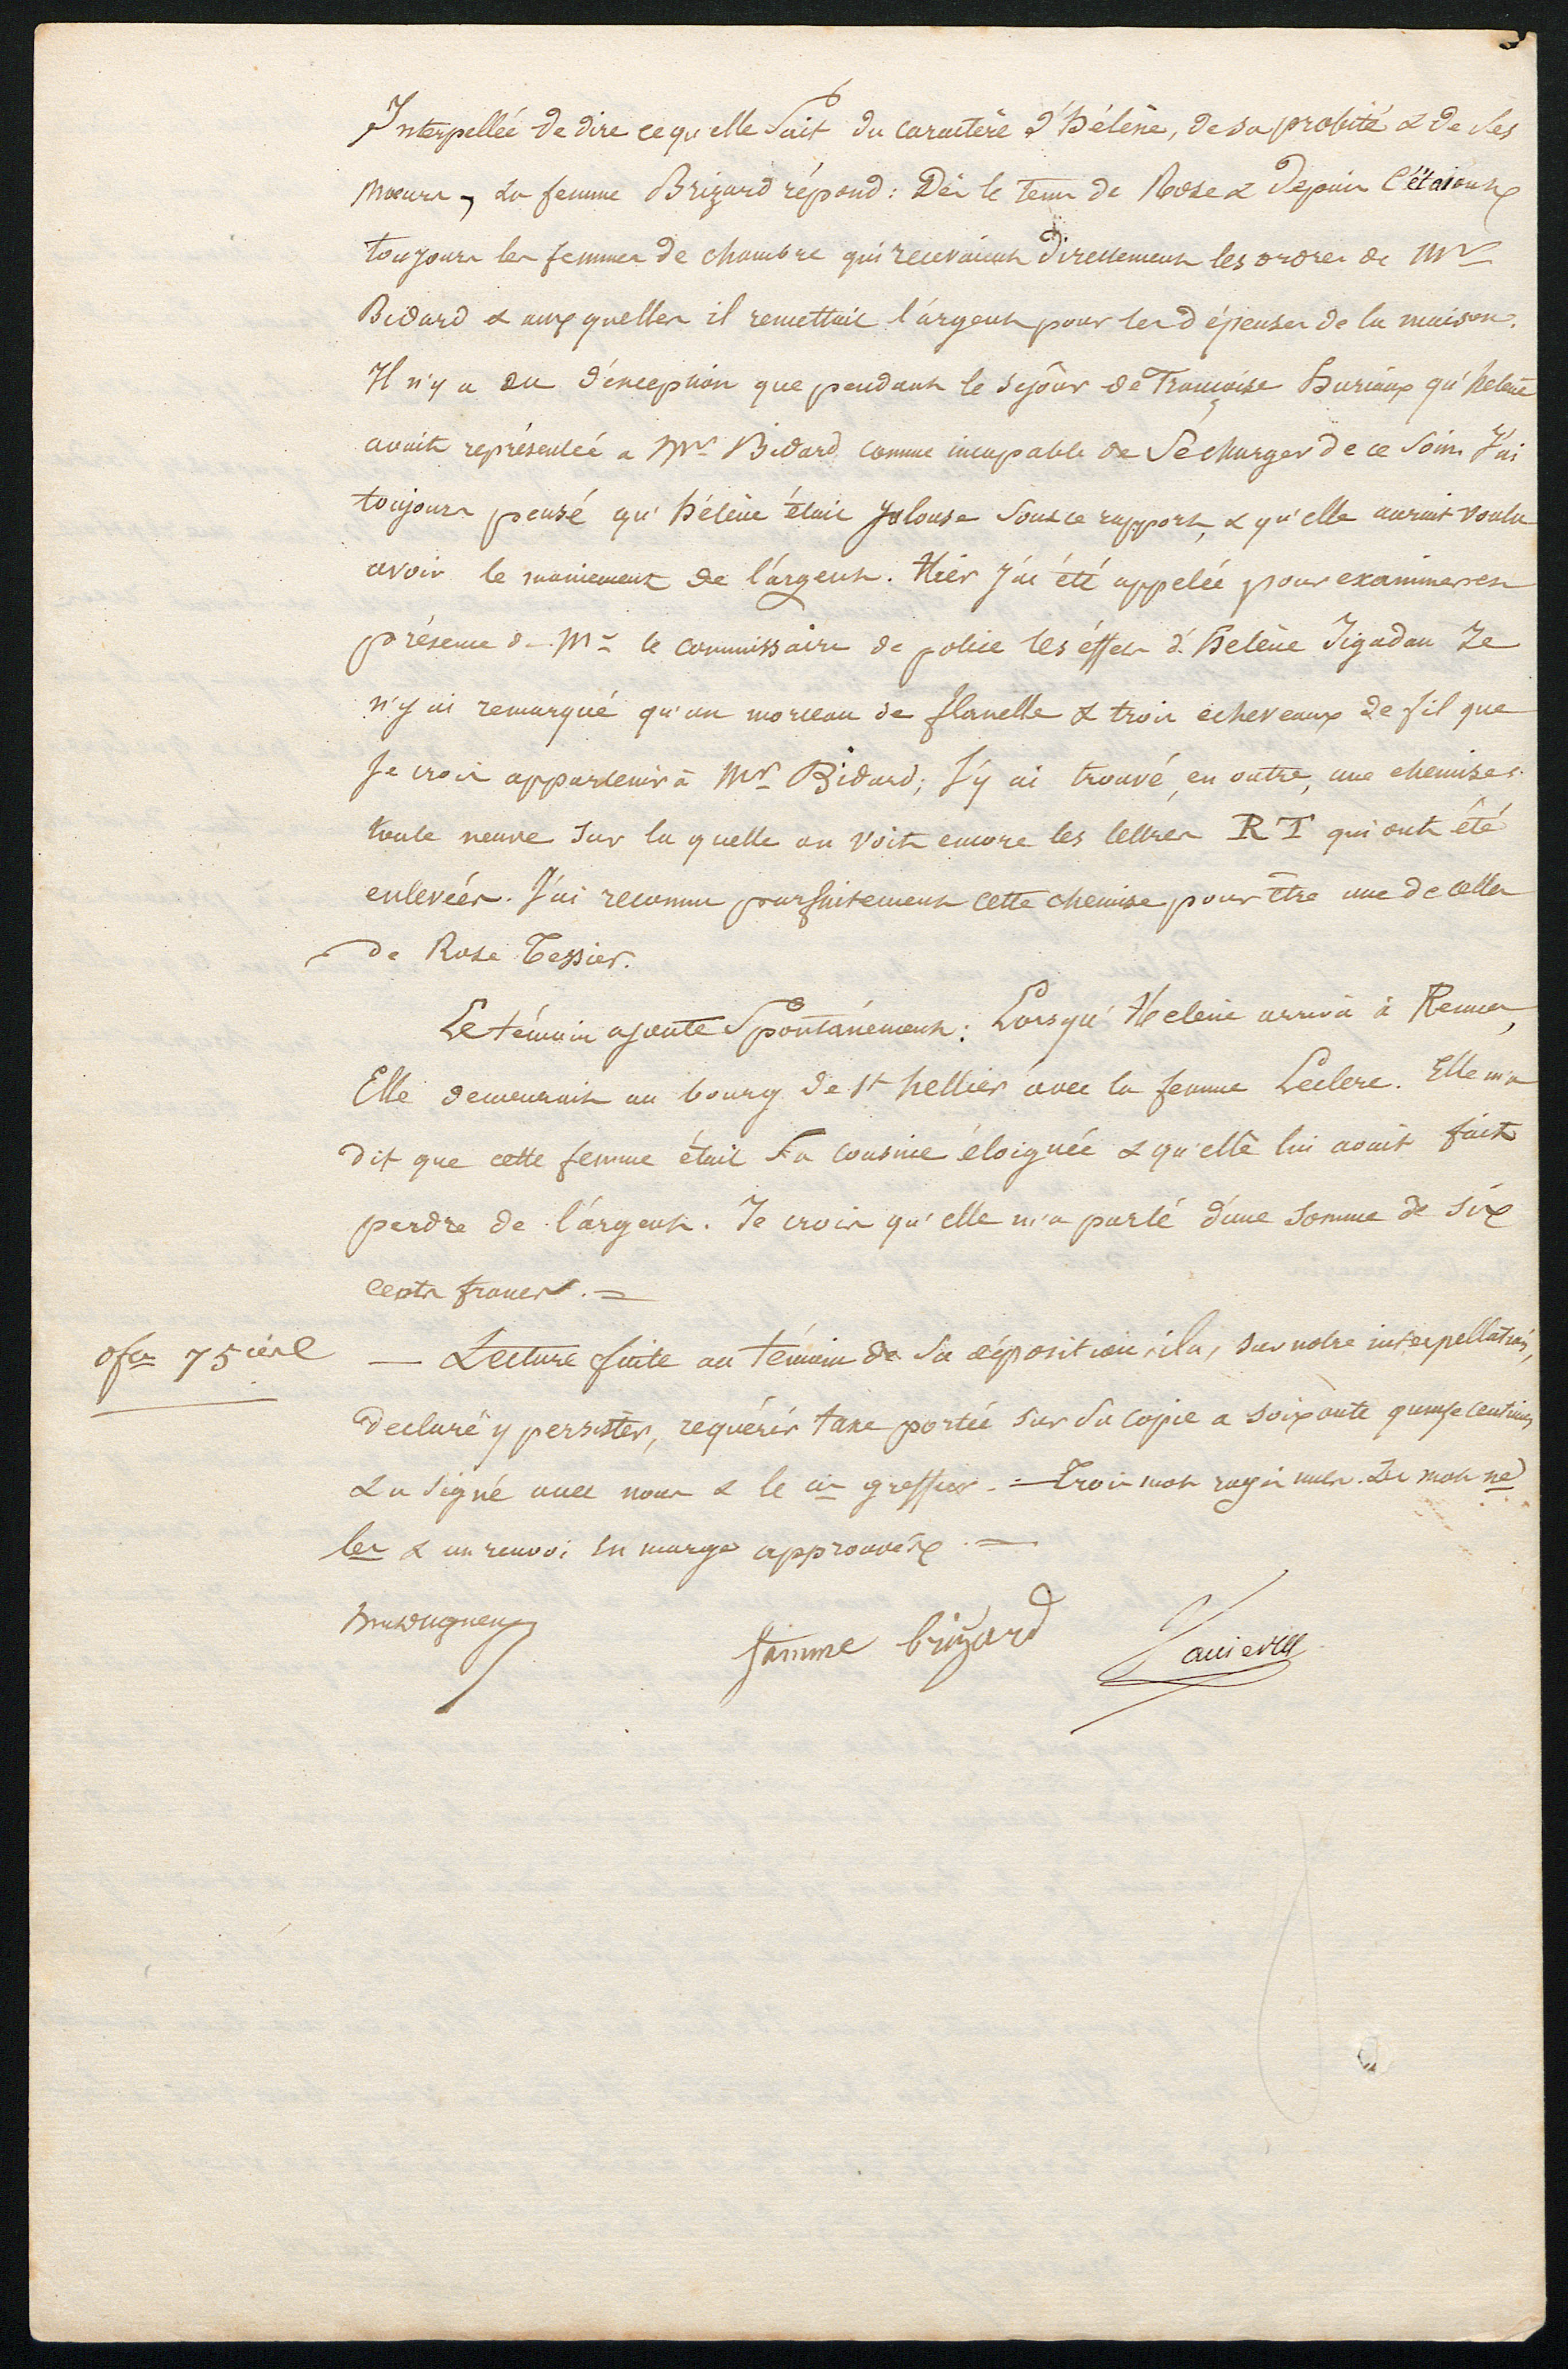 Interpellée de dire ce qu'elle sait du caractère d'hélène, de sa probité & de ses
mœurs, la femme Brizard répond : Dès le tems de Rose & depuis c'étaient
toujours les femmes de chambre qui recevaient directement les ordres de Mr
Bidard & aux quelles il remettait l'argent pour les dépenses de la maison.
Il n'y a eu d'exception que pendant le séjour de Françoise Huriaux qu'helène
avait représentée a Mr Bidard comme incapable de se charger de ce soin. J'ai
toujours pensé qu'hélène était jalouse sous ce rapport, & qu'elle aurait voulu
avoir le maniement de l'argent. Hier j'ai été appelée pour examiner en
présence de Mr le commissaire de police les effets d'helène Jigadau Je
n'y ai remarqué qu'un morceau de flanelle & trois écheveaux de fil que
Je crois appartenir à Mr Bidard; J'y ai trouvé, en outre, une chemise
toute neuve sur la quelle on voit encore les lettres R T qui ont été
enlevées. J'ai reconnu parfaitement cette chemise pour être une de celles
de Rose Tessier.
Le témoin ajoute spontanément : Lorsqu'Helène arriva à Rennes,
Elle demeurait au bourg de St hellier avec la femme Leclerc. Elle m'a
dit que cette femme était sa cousine éloignée & qu'elle lui avait fait
perdre de l'argent. Je crois qu'elle m'a parlé d'une somme de six
cents francs. =
0fr 75 cent — Lecture faite au témoin de sa déposition, il a, sur notre interpellation,
declaré y persister, requérir taxe portée sur sa copie a soixante quinze centimes
& a signé avec nous & le cis greffier. = Trois mots rayés nuls. Le mot
les & un renvoi en marge approuvés. =
femme brizard